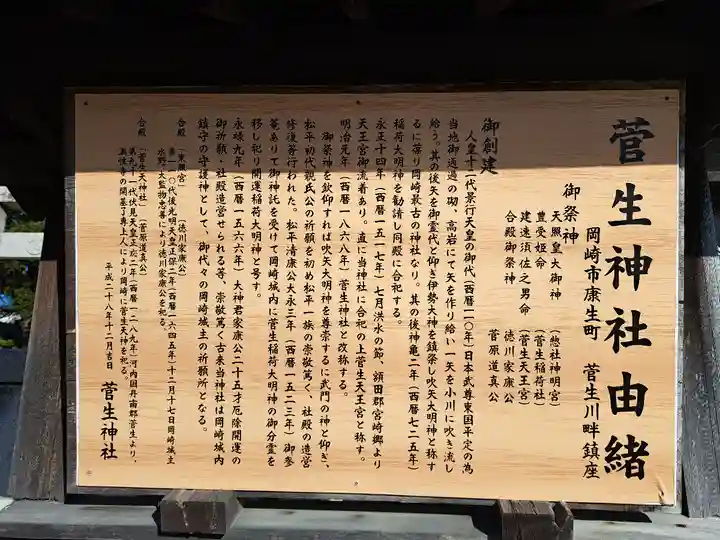 菅生神社由緒
岡崎市康生町　菅生川畔鎮座
御祭神
天照皇大御神　（惣社神明宮）
豊受姫命　（菅生稲荷社）
建速須佐之男命　（菅生天王宮）
合殿御祭神　徳川家康公
菅原道真公
御創建
人皇十二代景行天皇の御代（西暦一一〇年）日本武尊東国平定の為
当地御通過の砌、高岩にて矢を作り給い一矢を小川に吹き流し
給う。其の後矢を御霊代と仰ぎ伊勢大神を鎮祭し吹矢大明神と称す
るに肇り岡崎最古の神社なり。其の後神亀二年（西暦七二五年）
稲荷大明神を勧請し同殿に合祀する。
永正十四年（西暦一五一七年）七月洪水の節、額田郡宮崎郷より
天王宮御流着あり。直に当神社に合祀の上菅生天王宮と称す。
明治元年（西暦一八六八年）菅生神社と改称する。
御祭神を欽仰すれば吹矢大明神を尊崇するに武門の神と仰ぎ、
松平初代親氏公の祈願を初め松平一族の崇敬篤く、社殿の造営
修復等行われた。松平清康公大永三年（西暦一五二三年）御参
篭ありて御神託を受けて岡崎城内に菅生稲荷大明神の御分霊を
移し祀り開運稲荷大明神と号す。
永禄九年（西暦一五六六年）大神君家康公二十五才厄除開運の
御祈願・社殿造営せられる等、崇敬篤く古来当神社は岡崎城内
鎮守の守護神として、御代々の岡崎城主の祈願所となる。
合殿　（東照宮）　（徳川家康公）
第一一〇代後光明天皇正保二年（西暦一六四五年）十二月十七日岡崎城主
水野大監物忠善により徳川家康公を祀る。
合殿　（菅生天神社）　（菅原道真公）
第九十二代伏見天皇正応二年（西暦一二八九年）河内国丹南郡菅生より、
満性寺の開基了専上人により岡崎に菅生天神を祀る。
平成二十八年十二月吉日　菅生神社